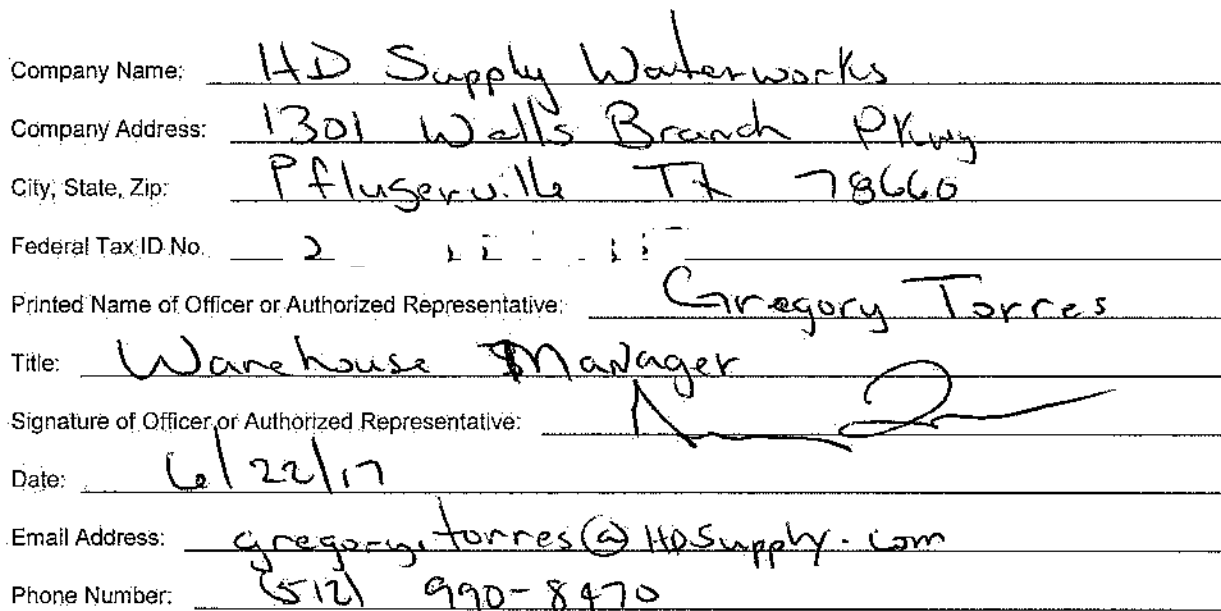 Company Name: HD Supply Waterworks
Company Address: 1301 Wells Branch PKwy
City, State, Zip: Pflugerville TX 78660
Federal Tax ID No. 2
Printed Name of Officer or Authorized Representative: Gregory Torres
Title: Warehouse Manager
Signature of Officer or Authorized Representative:
Date: 6/22/17
Email Address: gregory.torres@HDSupply.com
Phone Number: (512) 990-8470